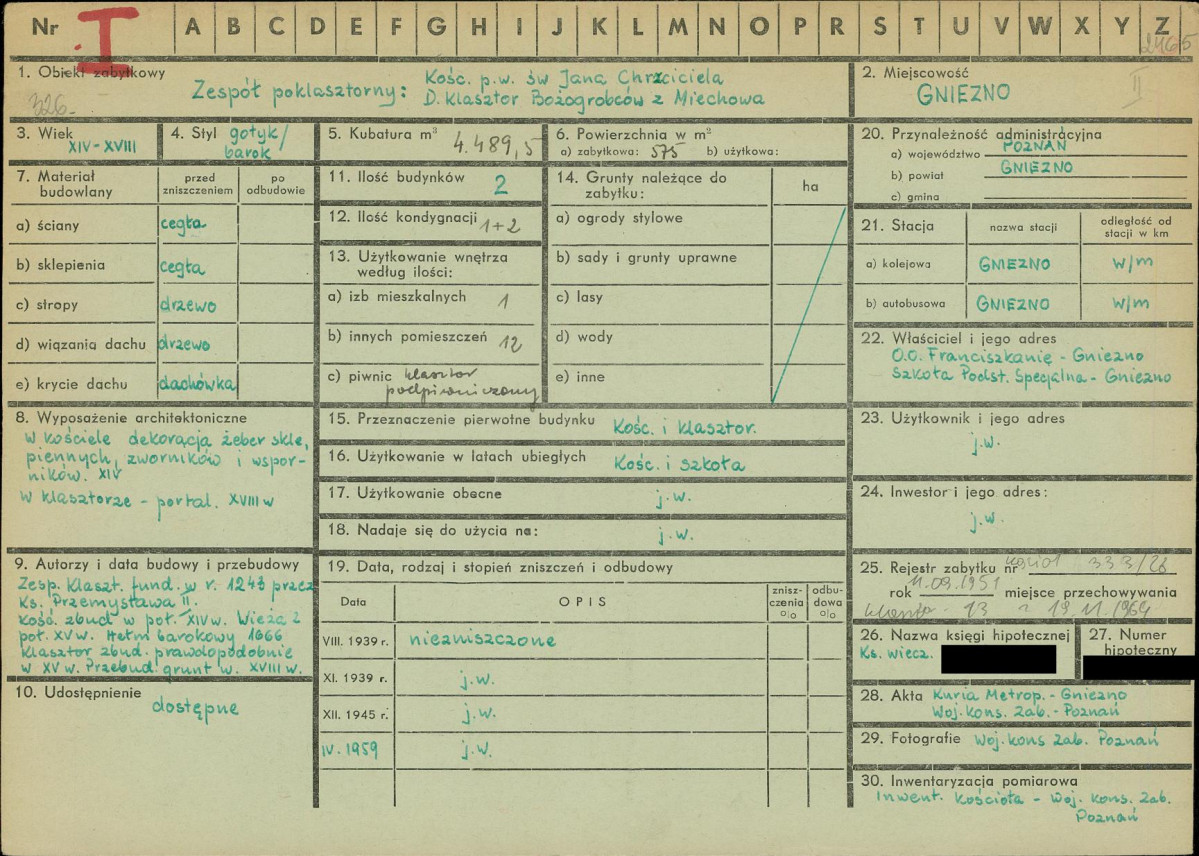 Nr I A B C D E F G H I J K L M N O P R S T U V W X Y Z
2465
II
326
1. Obiekt zabytkowy
Zespół poklasztorny: Kośc. p.w. św Jana Chrzciciela
D. Klasztor Bożogrobców z Miechowa
2. Miejscowość
GNIEZNO
3. Wiek
XIV-XVIII
4. Styl gotyk/
barok
5. Kubatura m³ 4.489,5
6. Powierzchnia w m²
a) zabytkowa: 575 b) użytkowa:
7. Materiał budowlany
przed zniszczeniem
po odbudowie
a) ściany cegła
b) sklepienia cegła
c) stropy drzewo
d) wiązania dachu drzewo
e) krycie dachu dachówka
8. Wyposażenie architektoniczne
w kościele dekoracja żeber skle,
piennych, zworników i wspor-
ników. XIV
w klasztorze - portal. XVIII w
9. Autorzy i data budowy i przebudowy
Zesp. klaszt. fund. w r. 1243 przez
Ks. Przemysława II.
Kość. zbud w poł. XIV w. Wieża 2
poł. XV w. Hełm barokowy 1666
Klasztor zbud. prawdopodobnie
w XV w. Przebud. grunt w. XVIII w.
10. Udostępnienie
dostępne
11. Ilość budynków 2
12. Ilość kondygnacji 1+2
13. Użytkowanie wnętrza
według ilości:
a) izb mieszkalnych 1
b) innych pomieszczeń 12
c) piwnic klasztor
podpiwniczony
14. Grunty należące do
zabytku:
ha
a) ogrody stylowe
b) sady i grunty uprawne
c) lasy
d) wody
e) inne
15. Przeznaczenie pierwotne budynku Kośc. i klasztor.
16. Użytkowanie w latach ubiegłych Kośc. i szkoła
17. Użytkowanie obecne j.w.
18. Nadaje się do użycia na: j.w.
19. Data, rodzaj i stopień zniszczeń i odbudowy
Data
OPIS
znisz-
czenia
%
odbu-
dowa
%
VIII. 1939 r. niezniszczone
XI. 1939 r. j.w.
XII. 1945 r. j.w.
IV. 1959 j.w.
20. Przynależność administracyjna
a) województwo POZNAŃ
b) powiat GNIEZNO
c) gmina
21. Stacja
nazwa stacji
odległość od
stacji w km
a) kolejowa GNIEZNO w/m
b) autobusowa GNIEZNO w/m
22. Właściciel i jego adres
O.O. Franciszkanie - Gniezno
Szkoła Podst. Specjalna - Gniezno
23. Użytkownik i jego adres
j.w.
24. Inwestor i jego adres:
j.w.
25. Rejestr zabytku nr kościoł 333/26
rok 11.09.1951 miejsce przechowywania
13 19.11.1964
26. Nazwa księgi hipotecznej
Ks. wiecz.
27. Numer
hipoteczny
28. Akta Kuria Metrop. - Gniezno
Woj. kons. Zab. - Poznań
29. Fotografie Woj. kons Zab. Poznań
30. Inwentaryzacja pomiarowa
Inwent. kościoła - Woj. kons. Zab.
Poznań